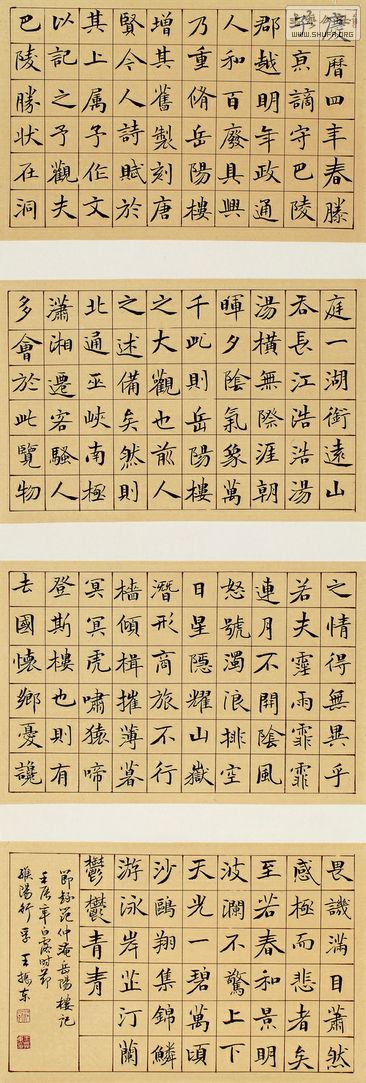 慶曆四年春滕
子亰謫守巴陵
郡越明年政通
人和百廢具興
乃重脩岳陽樓
增其舊製刻唐
賢今人詩賦於
其上属予作文
以記之予觀夫
巴陵勝狀在洞
庭一湖銜遠山
吞長江浩浩湯
湯橫無際涯朝
暉夕陰氣象萬
千此則岳陽樓
之大觀也前人
之述備矣然則
北通巫峽南極
瀟湘遷客騷人
多會於此覽物
之情得無異乎
若夫霪雨霏霏
連月不開陰風
怒號濁浪排空
日星隱耀山嶽
潛形商旅不行
檣傾楫摧薄暮
冥冥虎嘯猿啼
登斯樓也則有
去國懷鄉憂讒
畏譏滿目蕭然
感極而悲者矣
至若春和景明
波瀾不驚上下
天光一碧萬頃
沙鷗翔集錦鱗
游泳岸芷汀蘭
鬱鬱青青
節錄范仲淹岳陽樓記
壬辰年白露時節
睢陽 王振东
WWW.SHUFA.ORG